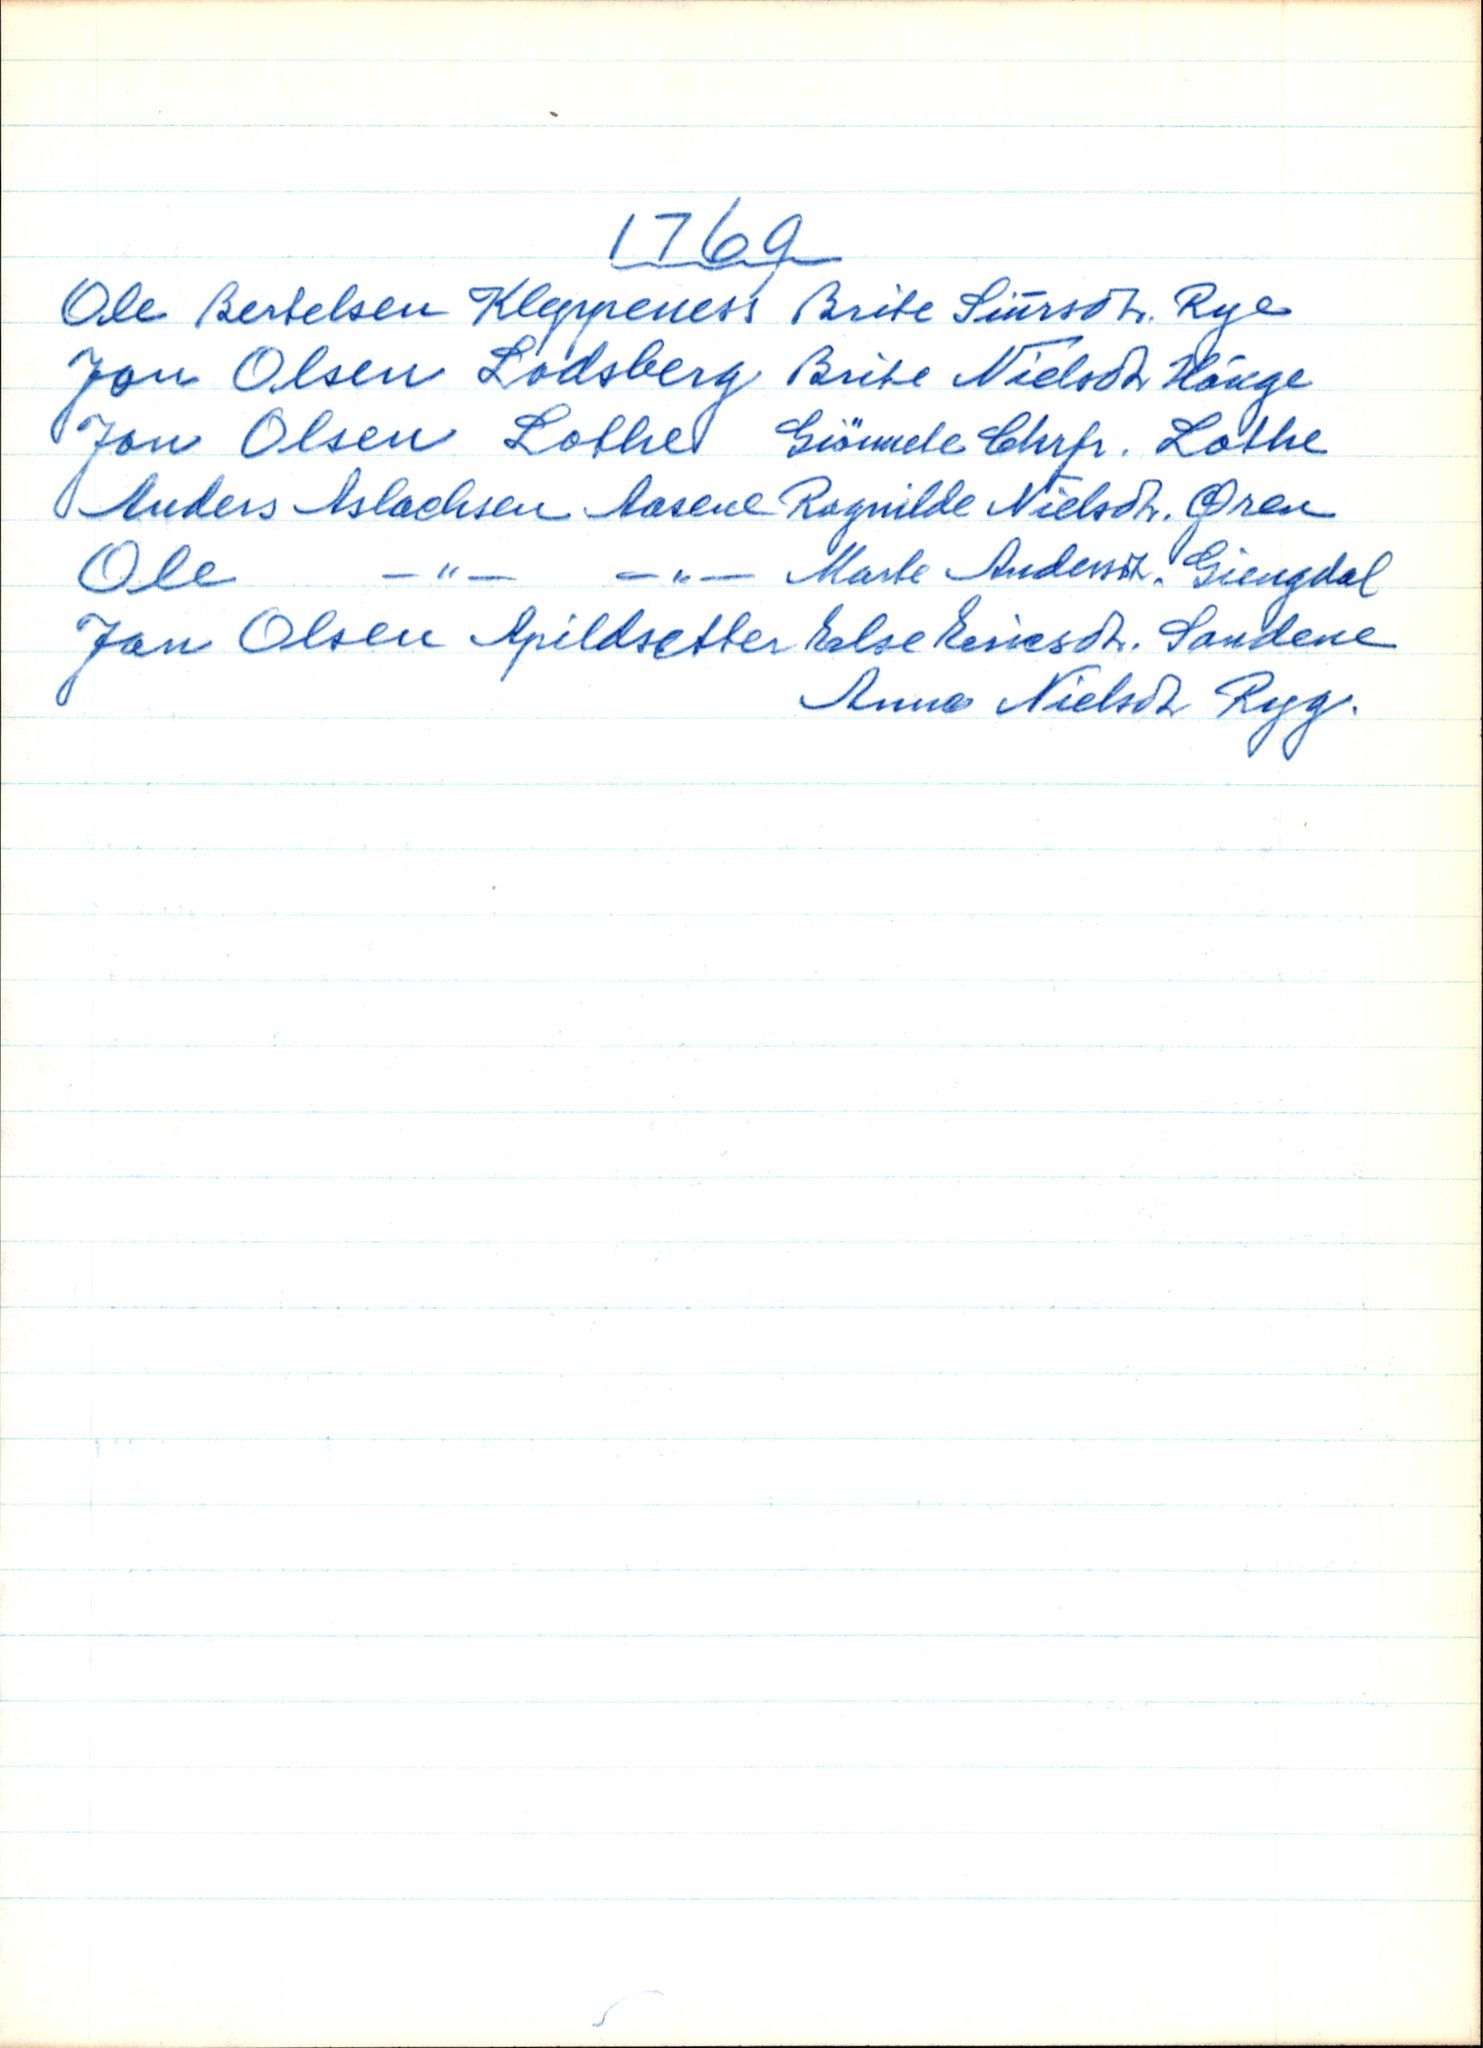 1769
Ole Bertelsen Kleppeness Brite Siūrsdtr. Rye
Jon Olsen Lodsberg Brite Nielsdtr Hōuge
Jon Olsen Lothe Giönnete Chrfr. Lothe
Anders Aslachsen Aasene Ragnilde Nielsdtr. Øren
Ole —"— —"— Marte Andersdtr. Giengdal
Jon Olsen Apildsetter Else Ericsdtr. Sandene
Anna Nielsdtr Ryg.